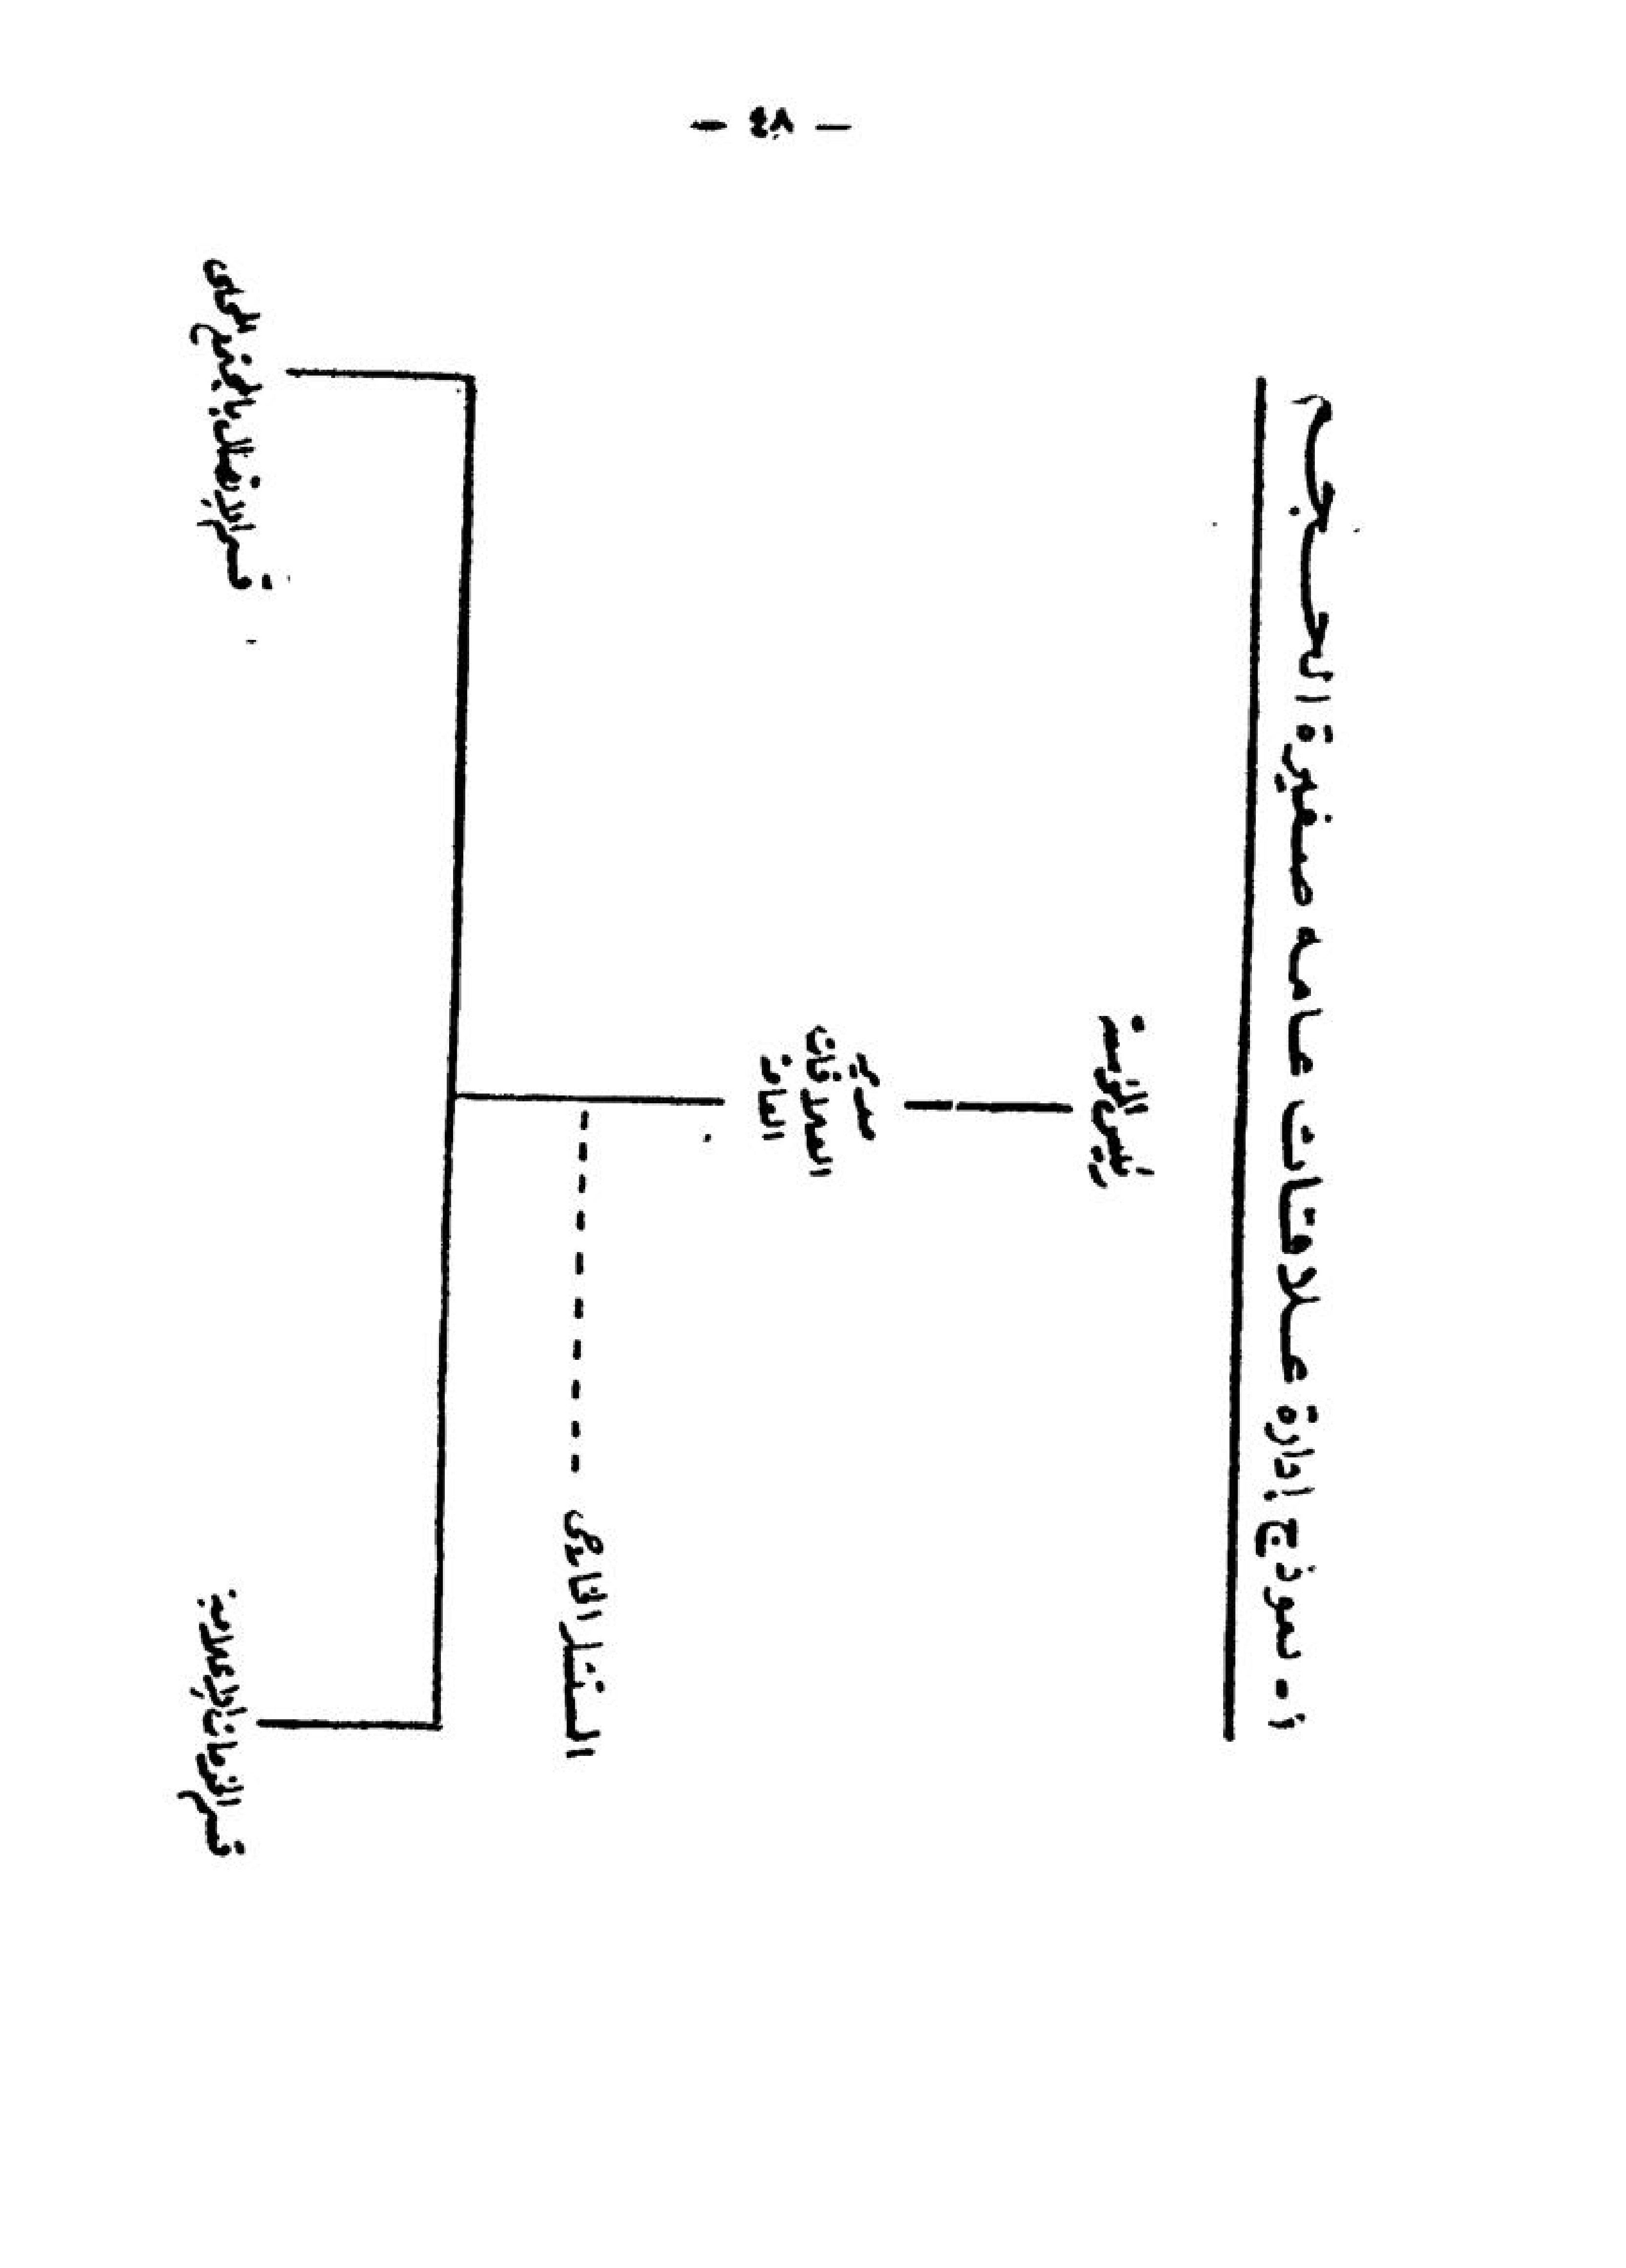 - ٤٨ -
أ - نموذج إدارة علاقات عامه صغيرة الحجم
رئيس المؤسسة
مدير
العلاقات
العامة
المستشار القانونى
قسم الخدمات الإعلامية
قسم الإتصال بالمجتمع المحلى